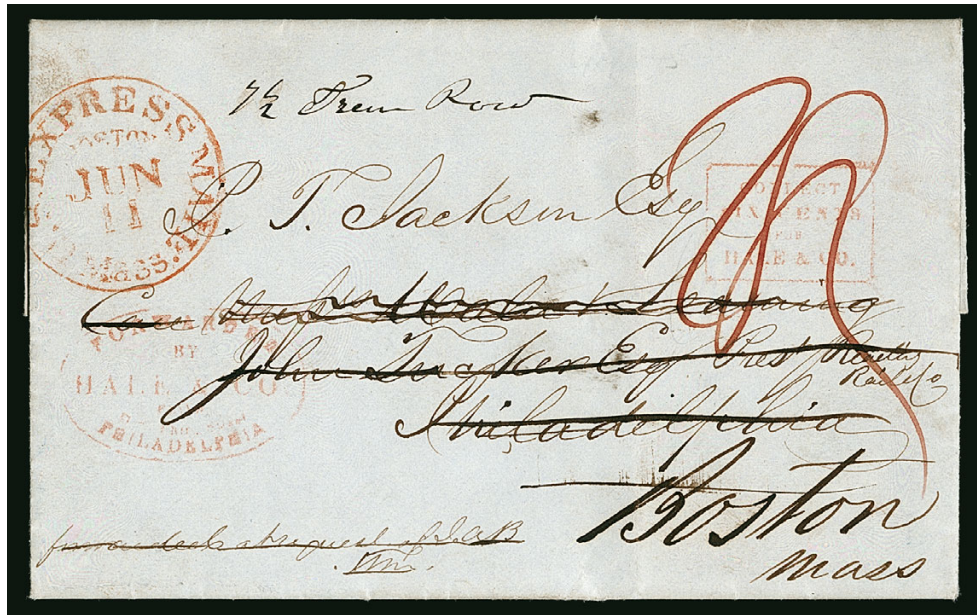 7½ Trem Row
EXPRESS MAIL.
BOSTON
JUN
11
Mass.
P. T. Jackson Esq
COLLECT
SIX CENTS
FOR
HALE & CO.
Care
FORWARDED
BY
HALE & CO.
PHILADELPHIA
John Tucker Esq Prest
Philadelphia
Boston
Mass
forwarded at request of